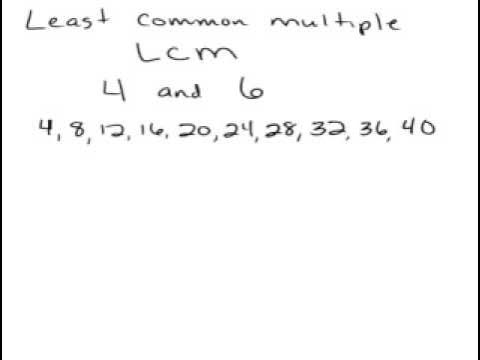 Least common multiple
LCM
4 and 6
4, 8, 12, 16, 20, 24, 28, 32, 36, 40